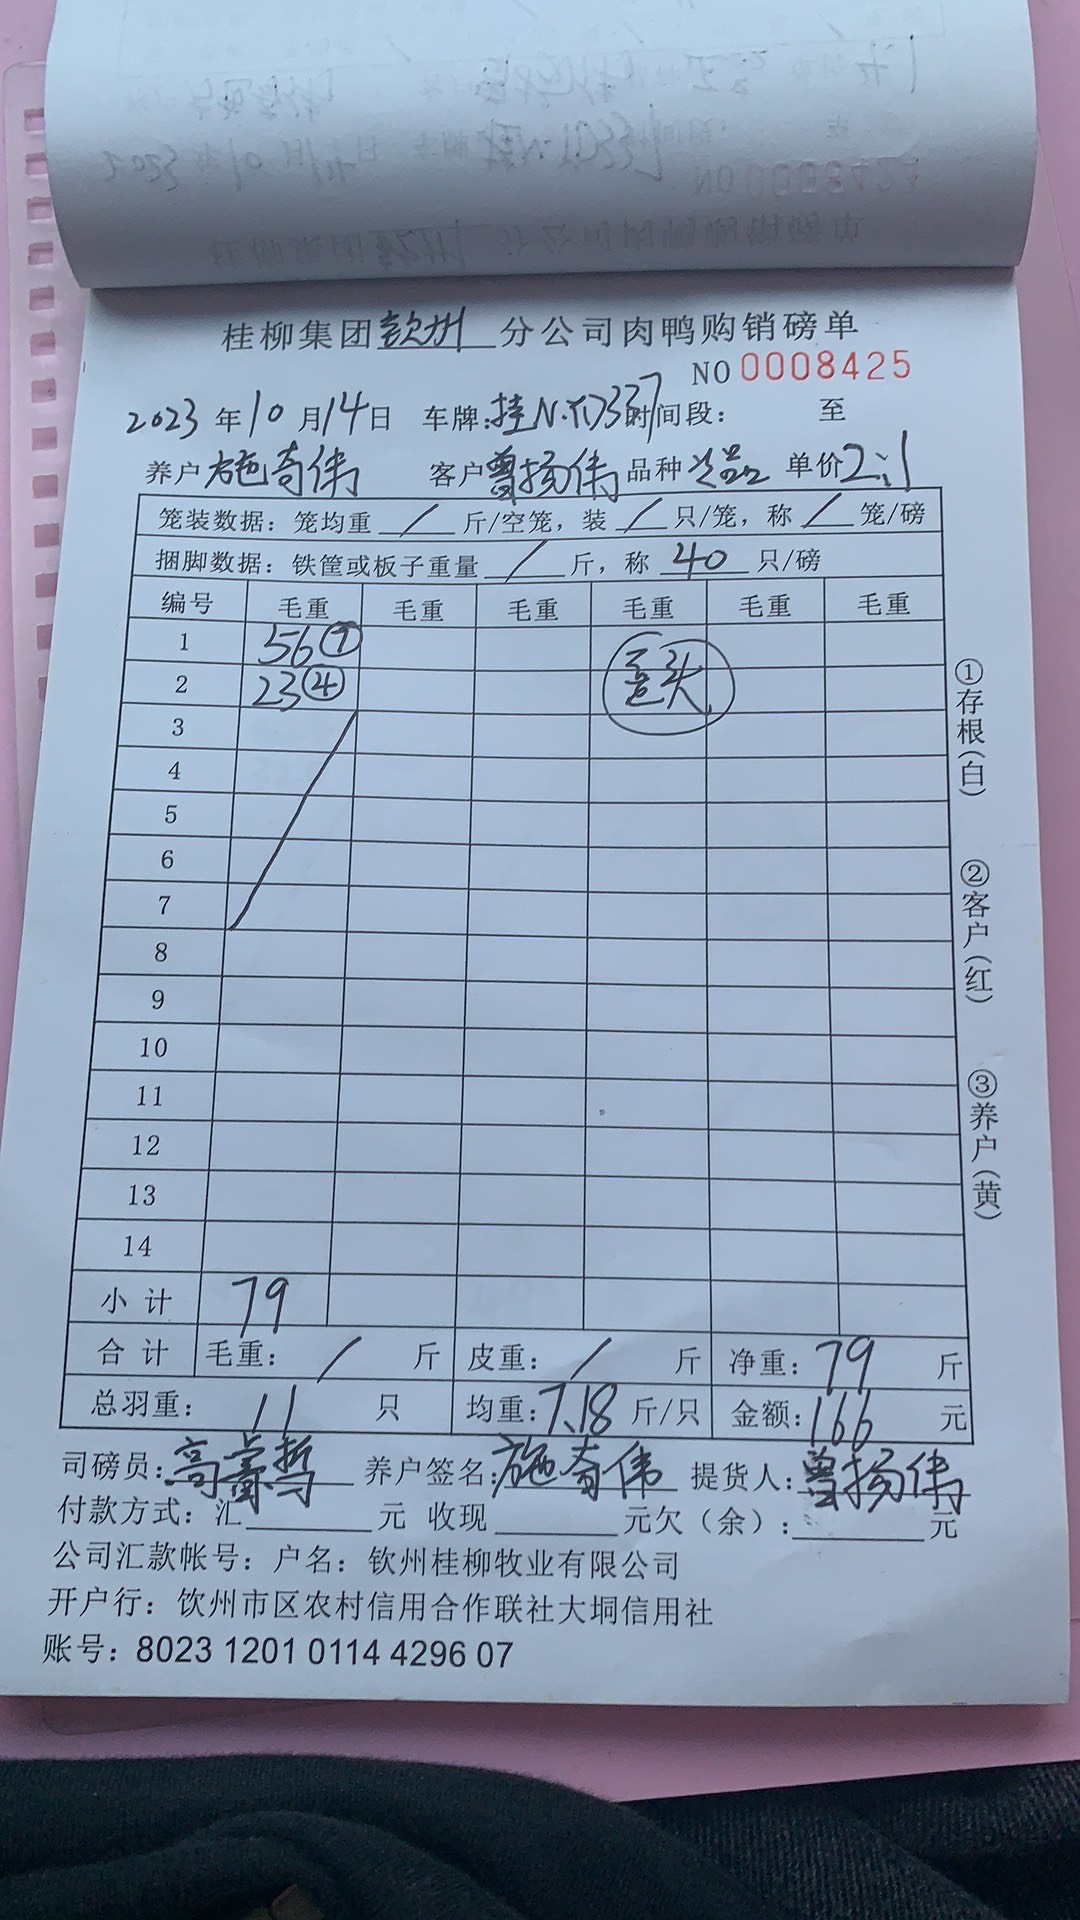 桂柳集团钦州分公司肉鸭购销磅单
NO 0008425
2023年10月14日 车牌:桂N·D337 时间段: 至
养户施奇伟 客户曾扬伟 品种 单价2.1
笼装数据:笼均重 / 斤/空笼,装 / 只/笼,称 / 笼/磅
捆脚数据:铁筐或板子重量 / 斤,称 40 只/磅
编号 毛重 毛重 毛重 毛重 毛重 毛重
1 56⑦
2 23④
3
4
5
6
7
8
9
10
11
12
13
14
小计 79
合计 毛重: / 斤 皮重: / 斤 净重:79 斤
总羽重: 11 只 均重:7.18 斤/只 金额:166 元
司磅员:高 哲 养户签名:施奇伟 提货人:曾扬伟
付款方式:汇 元 收现 元欠(余): 元
公司汇款帐号:户名:钦州桂柳牧业有限公司
开户行:钦州市区农村信用合作联社大垌信用社
账号:8023 1201 0114 4296 07
①存根(白)
②客户(红)
③养户(黄)